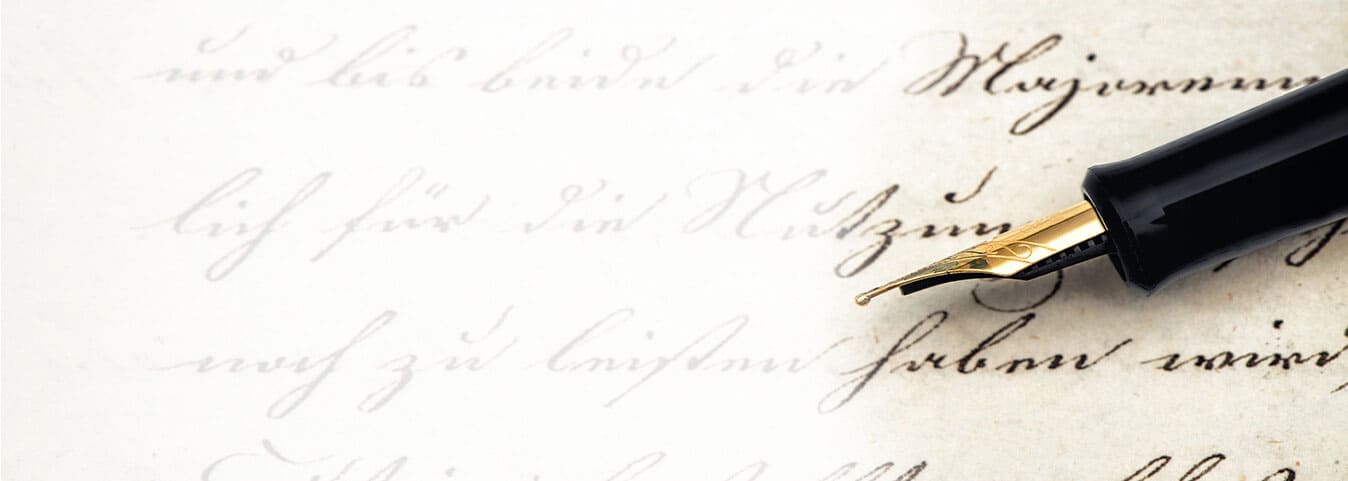 und bis beide die Majorenn
lich für die Nutzun
noch zu leisten haben wird